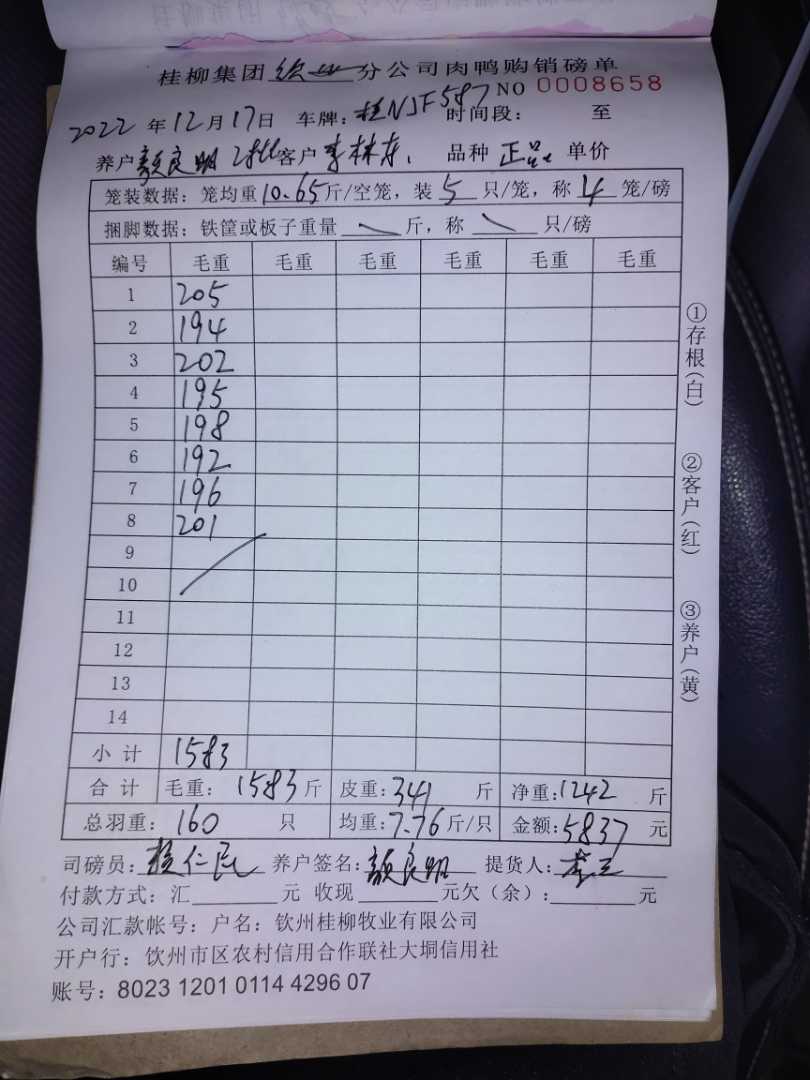 桂柳集团 钦州 分公司肉鸭购销磅单
NO 0008658
2022 年 12 月 17 日 车牌：桂NJF587 时间段： 至
养户 颜良明 2批 客户 李林东 品种 正品 单价
笼装数据：笼均重 10.65 斤/空笼，装 5 只/笼，称 4 笼/磅
捆脚数据：铁筐或板子重量 斤，称 只/磅
编号 毛重 毛重 毛重 毛重 毛重 毛重
1 205
2 194
3 202
4 195
5 198
6 192
7 196
8 201
9
10
11
12
13
14
小 计 1583
合 计 毛重：1583 斤 皮重：341 斤 净重：1242 斤
总羽重：160 只 均重：7.76 斤/只 金额：5837 元
司磅员： 仁 养户签名：颜良明 提货人：
付款方式：汇 元 收现 元欠（余）： 元
公司汇款帐号：户名：钦州桂柳牧业有限公司
开户行：钦州市区农村信用合作联社大垌信用社
账号：8023 1201 0114 4296 07
①存根（白）
②客户（红）
③养户（黄）